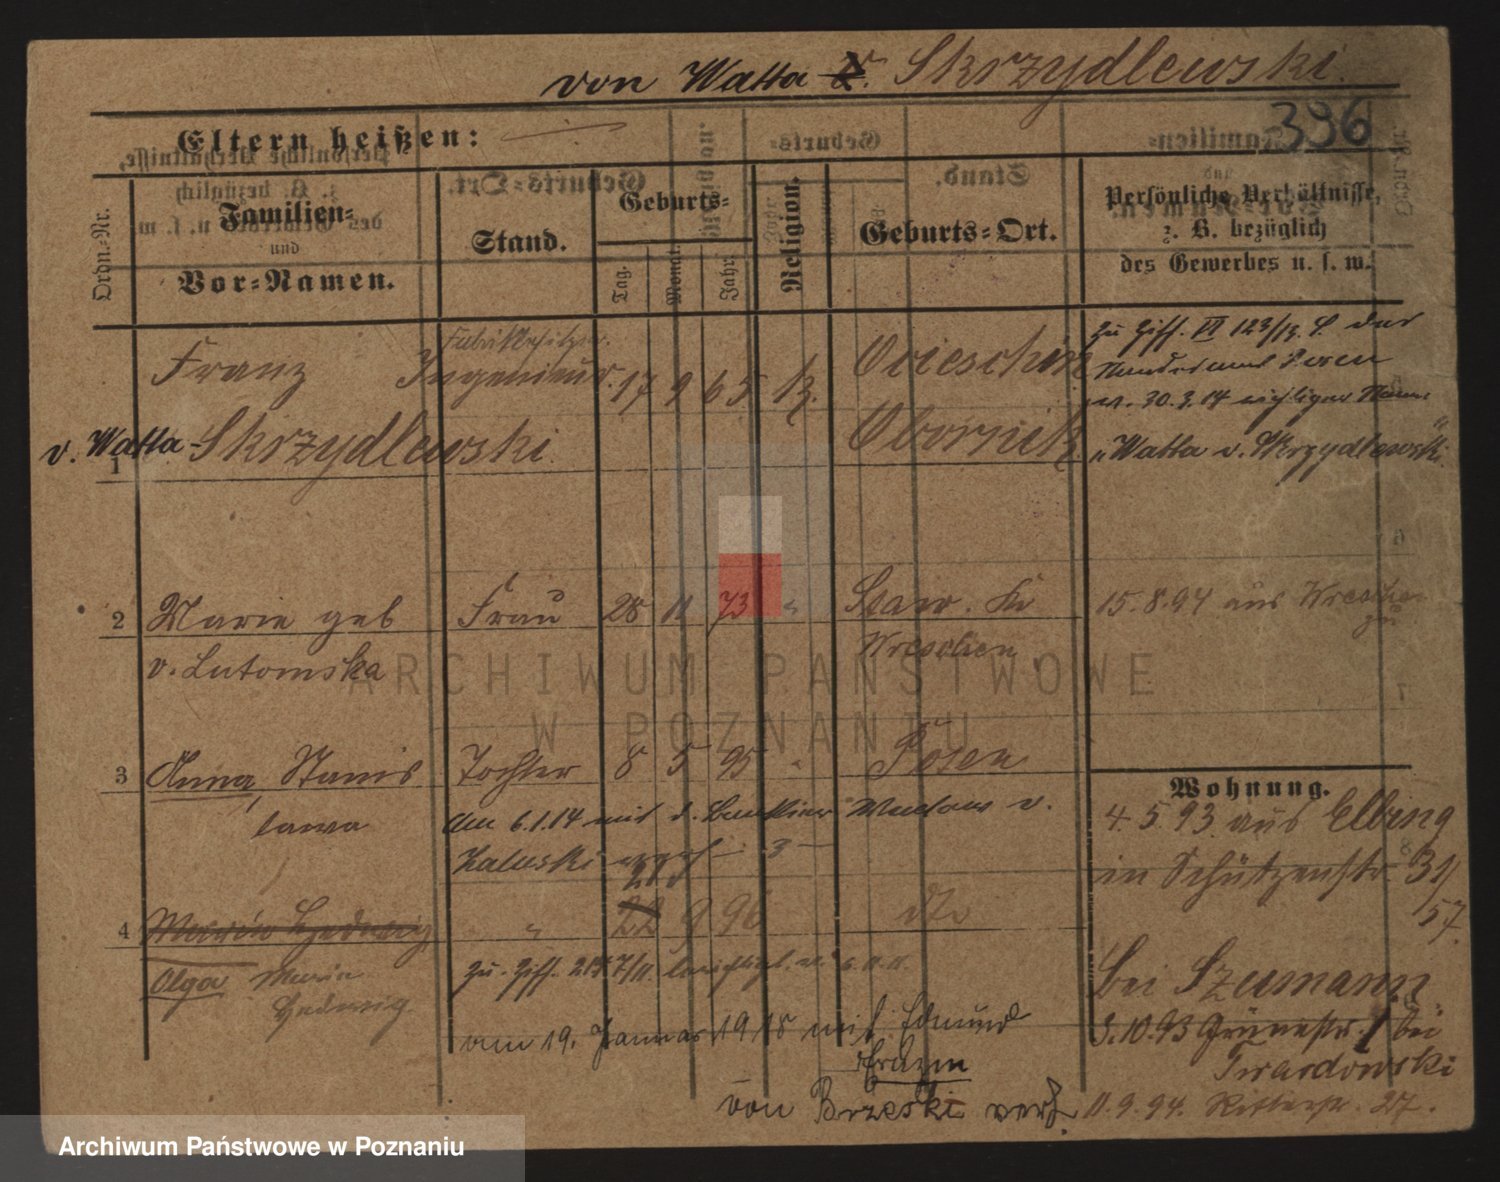 von Watta v. Skrzydlewski.
396
Eltern heißen:
Ordn.-Nr.
Familien-
und
Vor-Namen.
Stand.
Geburts-
Tag.
Monat.
Jahr.
Religion.
Geburts-Ort.
Persönliche Verhältnisse,
z. B. bezüglich
des Gewerbes u. s. w.
Franz
v. Watta-Skrzydlewski
1
Fabrikbesitzer.
Ingenieur.
17 9 65 k.
Obornik
zu Ziff. VI 123/13
30.3.14 richtiger Name
„Watta v. Skrzydlewski“
2
Marie geb
v. Lutomska
Frau
28 11 73 "
Staw. Kr
Wreschen
15.8.94 aus Wreschen
zu
3
Anna, Stanis
lawa
Tochter
8 5 95 "
Posen
Am 6.1.14 mit d. Bankier Waclaw v.
Zaluski
4
Maria Hedwig
Olga Maria
Hedwig
"
22 9 96
dto
zu Ziff. 7/11. berichtigt 6.11.11
am 19. Januar 1918 mit Edmund
Erazm
von Brzeski verh.
Wohnung.
4.5.93 aus Elbing
in Schützenstr. 31/
57.
bei Szumann
3.10.93 Grünestr. 1 bei
Twardowski
11.9.94. Ritterstr. 27.
ARCHIWUM PAŃSTWOWE
W POZNANIU
Archiwum Państwowe w Poznaniu